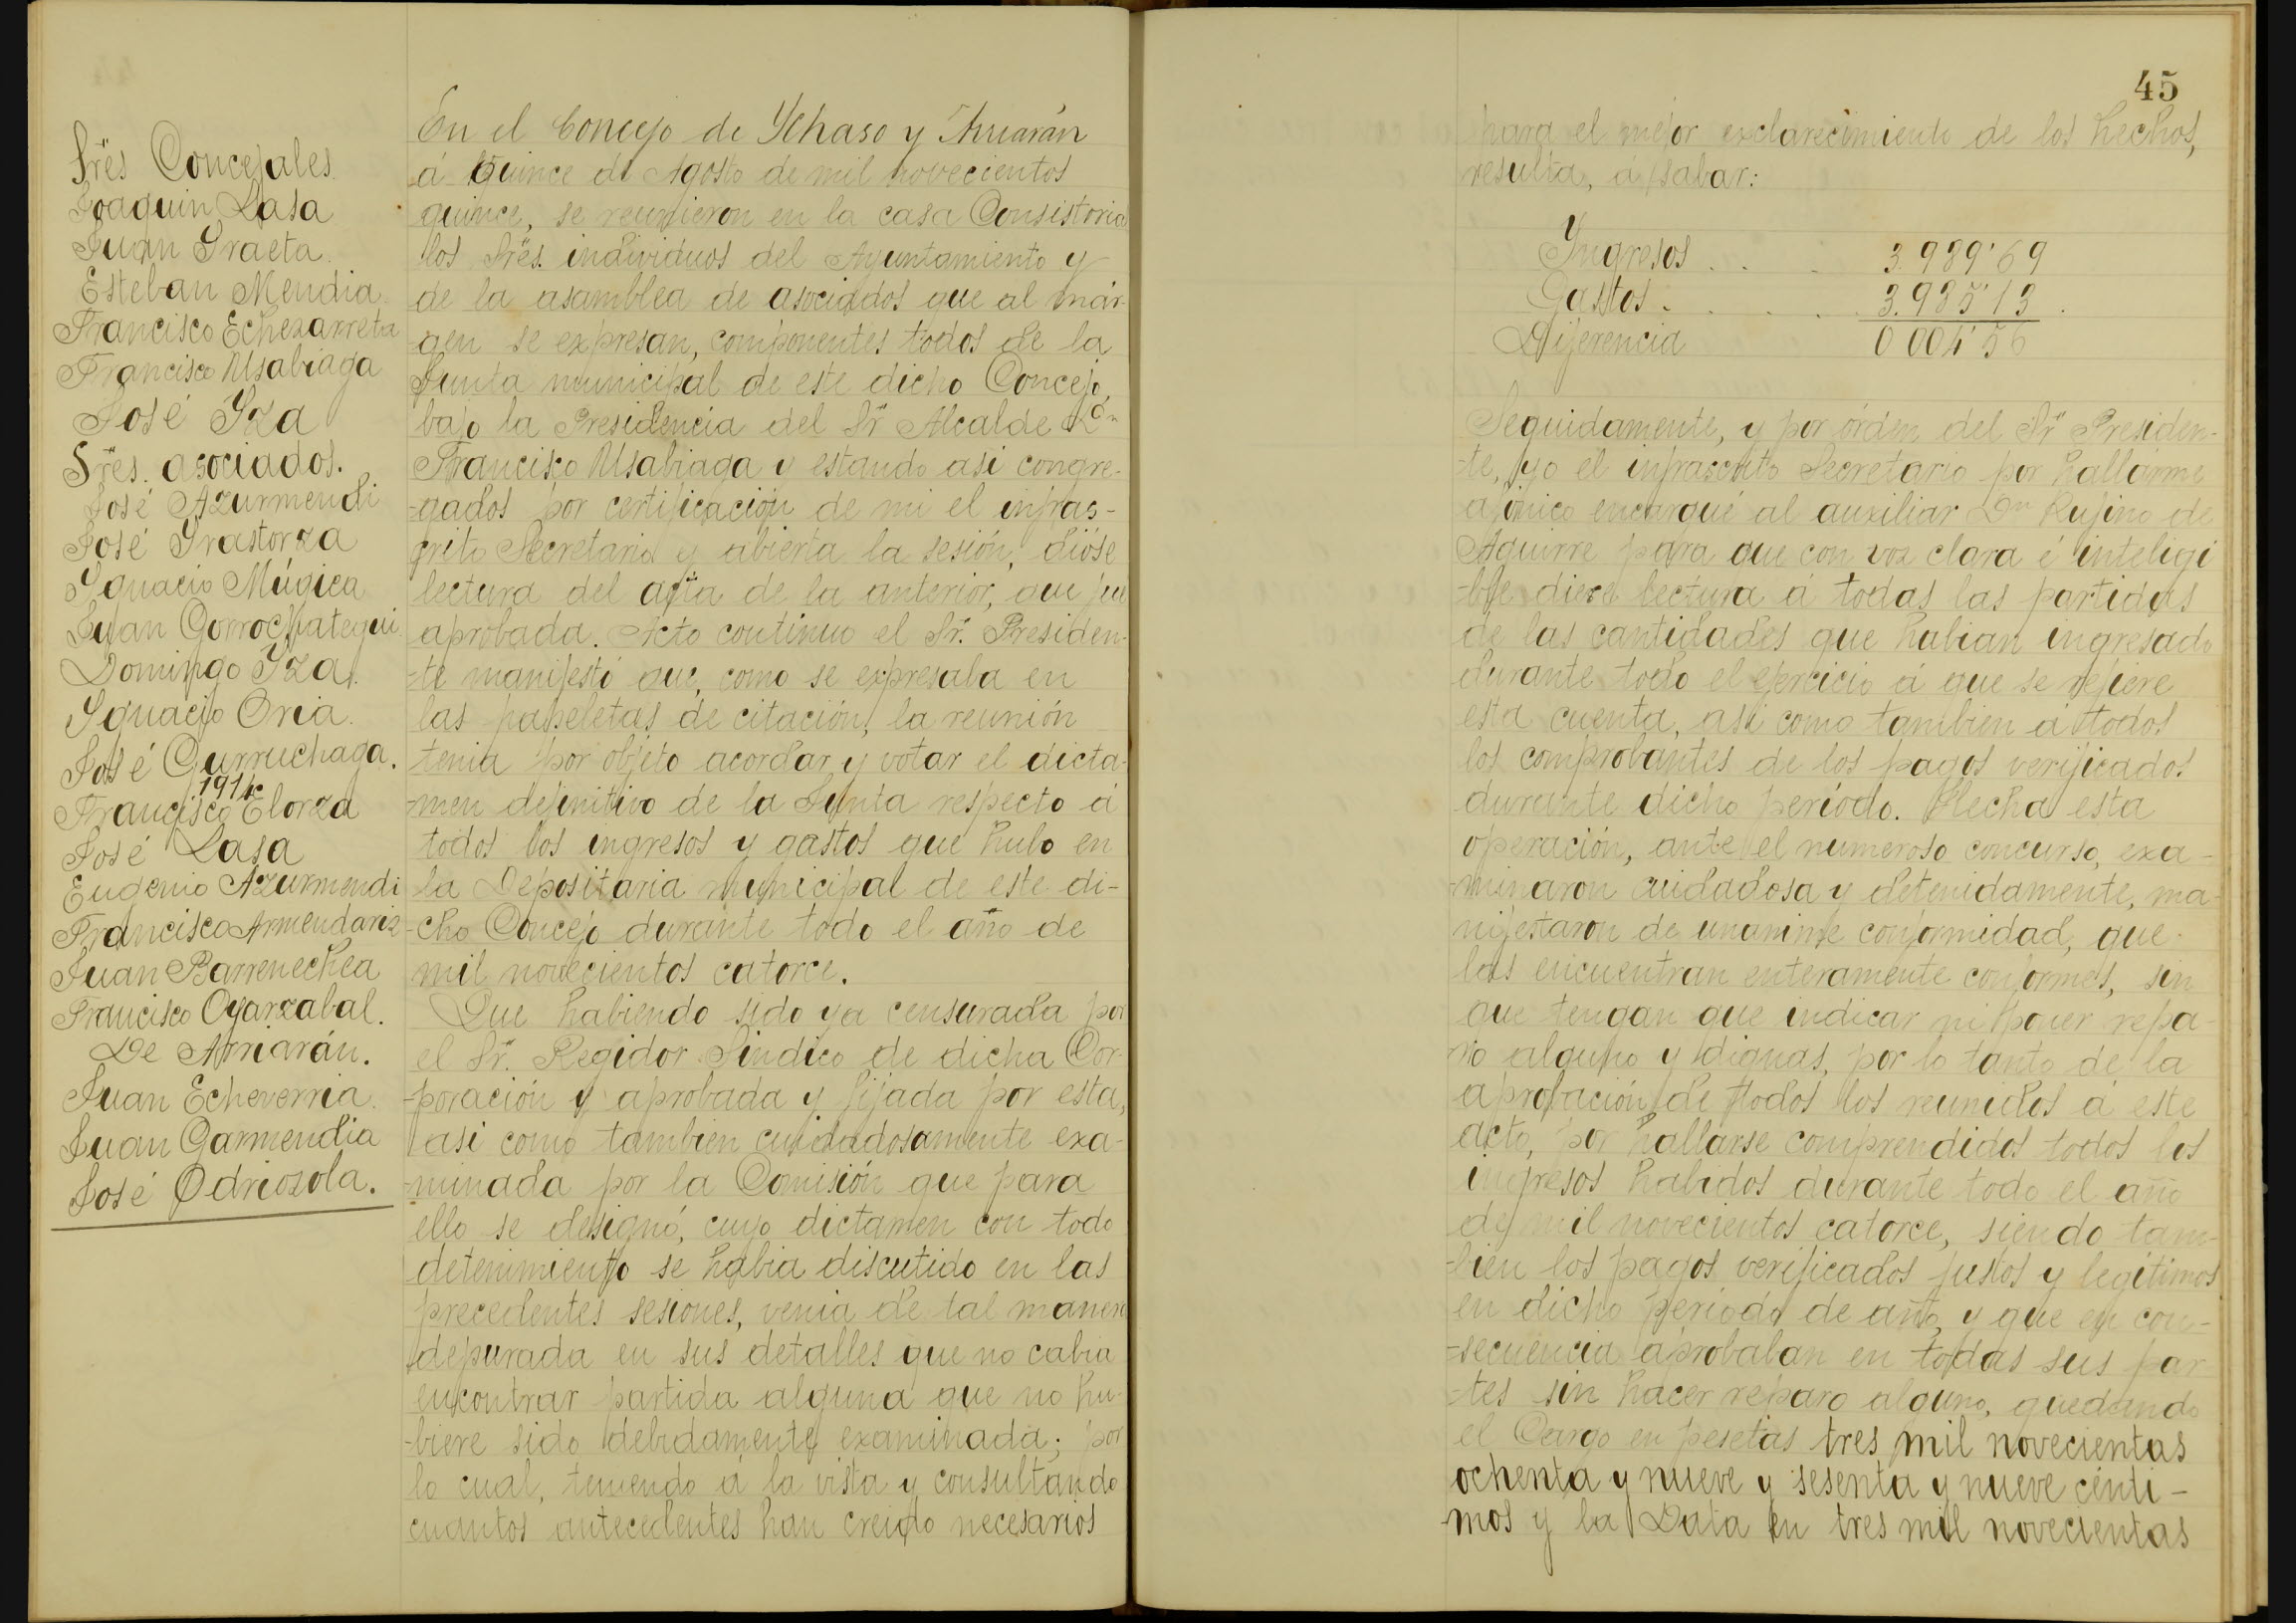 Srës Concejales.
Joaquin Lasa
Juan Yraeta.
Esteban Mendia.
Francisco Echezarreta
Francisco Usabiaga
José Yza
Srës. asociados.
José Azurmendi
José Yrastorza
Ygnacio Múgica
Juan Gorrochategui.
Domingo Yza.
Ygnacio Oria.
José Gurruchaga.
1914
Francisco Elorza
José Lasa
Eugenio Azurmendi
Francisco Armendariz
Juan Barrenechea
Francisco Oyarzabal.
De Arriarán.
Juan Echeverria.
Juan Garmendia
José Odriozola.
En el Concejo de Ychaso y Arriarán
á quince de Agosto de mil novecientos
quince, se reunieron en la casa Consistorial
los Srës. individuos del Ayuntamiento y
de la asamblea de asociados que al már-
gen se expresan, componentes todos de la
Junta municipal de este dicho Concejo,
bajo la Presidencia del Sr Alcalde Dn
Francisco Usabiaga y estando asi congre-
-gados por certificación de mi el infras-
crito Secretario y abierta la sesión, dióse
lectura del acta de la anterior, que fue
aprobada. Acto continuo el Sr. Presiden-
-te manifestó que, como se expresaba en
las papeletas de citación, la reunión
tenia por objeto acordar y votar el dicta-
-men definitivo de la Junta respecto á
todos los ingresos y gastos que hubo en
la Depositaria municipal de este di-
-cho Concejo durante todo el año de
mil novecientos catorce.
Que habiendo sido ya censurada por
el Sr. Regidor Sindico de dicha Cor-
-poración y aprobada y fijada por esta,
asi como tambien cuidadosamente exa-
-minada por la Comisión que para
ello se designó, cuyo dictamen con todo
detenimiento se habia discutido en las
precedentes sesiones, venia de tal manera
depurada en sus detalles que no cabia
encontrar partida alguna que no hu-
-biere sido debidamente examinada; por
lo cual, teniendo á la vista y consultando
cuantos antecedentes han creido necesarios
45
para el mejor esclarecimiento de los hechos,
resulta, á sabar:
Yngresos . . . 3.989'69
Gastos . . . . . 3.985'13
Diferencia 0 004'56
Seguidamente, y por órden del Sr Presiden-
-te, yo el infrascrito Secretario por hallarme
afónico encargué al auxiliar Dn Rufino de
Aguirre para que con voz clara é inteligi
-ble diere lectura á todas las partidas
de las cantidades que habian ingresado
durante todo el ejercicio á que se refiere
esta cuenta, asi como tambien á todos
los comprobantes de los pagos verificados
durante dicho período. Hecha esta
operación, ante el numeroso concurso, exa-
-minaron cuidadosa y detenidamente, ma-
nifestaron de unanime conformidad, que
las encuentran enteramente conformes, sin
que tengan que indicar ni poner repa-
ro alguno y dignas, por lo tanto de la
aprobación de todos los reunidos á este
acto, por hallarse comprendidos todos los
ingresos habidos durante todo el año
de mil novecientos catorce, siendo tam-
-bien los pagos verificados justos y legítimos
en dicho periodo de año, y que en con-
-secuencia aprobaban en todas sus par-
-tes sin hacer reparo alguno, quedando
el Cargo en pesetas tres mil novecientas
ochenta y nueve y sesenta y nueve cénti-
mos y la Data en tres mil novecientas